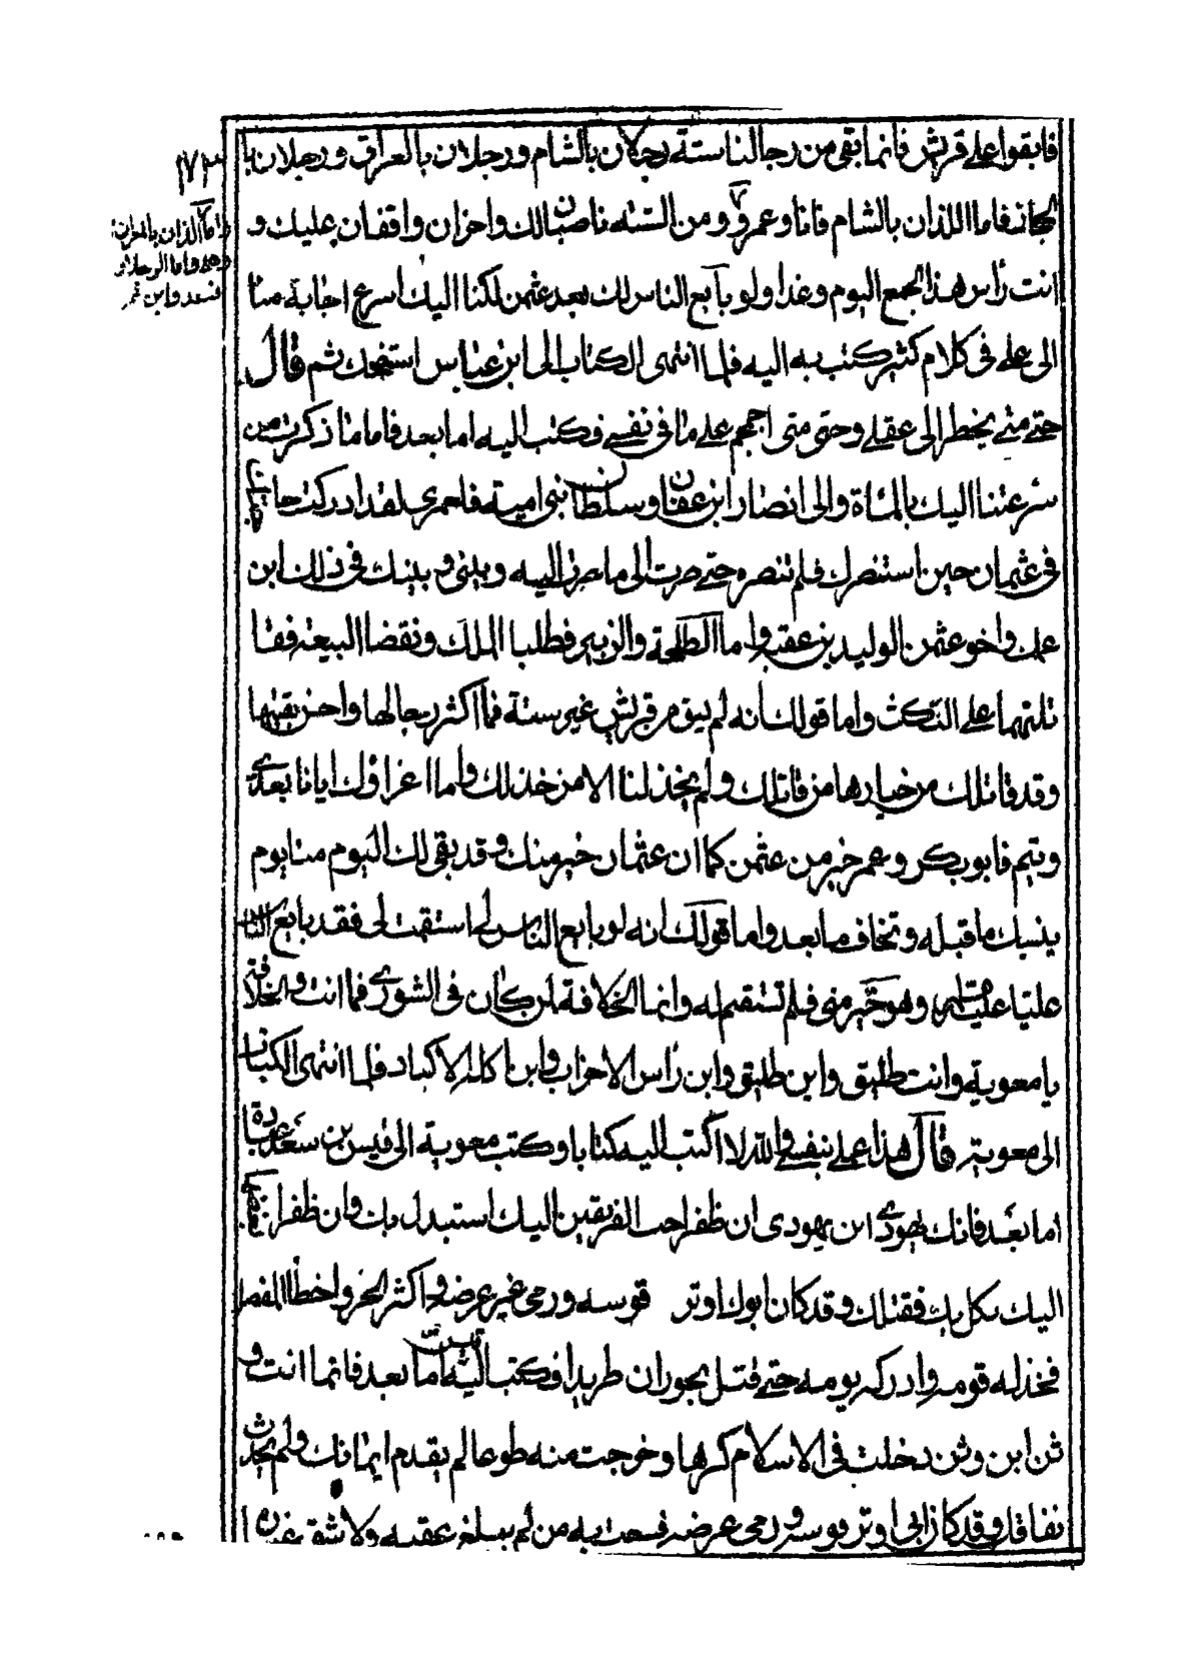 فابقوا على قريش فانما بقى من رجالنا ستة رجلان بالشام ورجلان بالعراق ورجلان با
لحجاز فاما اللذان بالشام فانا وعمرو ومن الستة ناصبان لك واخران واقفان عليك و
انت رأس هذا الجمع اليوم وغدا ولو بايع الناس لك بعد عثمن لكنا اليك اسرع اجابة منا
الى على فى كلام كثير كتب به اليه فلما انتهى الكتاب الى ابن عباس استضحك ثم قال
حتى متى يخطر الى عقلى وحتى متى اجمجم على ما فى نفسى فكتب اليه اما بعد فاما ما ذكرت من
سرعتنا اليك بالمساة والى انصار ابن عفان وسلطان بنى امية فلعمرى لقد ادركت حاجتك
فى عثمان حين استنصرك فلم تنصره حتى صرت الى ما صرت اليه وبينى وبينك فى ذلك ابن
عمك واخو عثمن الوليد بن عقبة واما الطلحة والزبير فطلبا الملك ونقضا البيعة فقا
تلتهما على النكث واما قولك انه لم يبق من قريش غير ستة فما اكثر رجالها واحسن بقيتها
وقد قاتلك من خيارها من قاتلك ولم يخذلنا الا من خذلك واما اغراؤك ايانا بعدى
وتيم فابو بكر وعمر خير من عثمن كما ان عثمان خير منك وقد بقى لك اليوم منا يوم
ينسيك ما قبله وتخاف ما بعد واما قولك انه لو بايع الناس لى استقمت لى فقد بايع الناس
عليا عليه السلام وهو خير منى فلم تستقم له وانما الخلافة لمن كان فى الشورى فما انت والخلافة
يا معوية وانت طليق وابن طليق وابن رأس الاحزاب وابن اكلة الاكباد فلما انتهى الكتاب
الى معوية قال هذا عملى بنفسى والله لا اكتب اليه كتابا وكتب معوية الى قيس بن سعد بن عبادة
اما بعد فانك يهودى ابن يهودى ان ظفر احب الفريقين اليك استبدل بك وان ظفر ابغضهما
اليك نكل بك فقتلك وقد كان ابوك اوتر قوسه ورمى غير عرضه واكثر الحز واخطأ المفصل
فخذله قومه وادركه يومه حتى قتل بحوران طريدا فكتب اليه قيس اما بعد فانما انت و
ثن ابن وثن دخلت فى الاسلام كرها وخرجت منه طوعا لم يقدم ايمانك ولم يحدث
نفاقك وقد كان ابى اوتر قوسه ورمى عرضه فسعت به من لم يبلغ عقبه ولا شق غباره ا
واما اللذان بالعراق
فعلى واما الرجلان
فسعد وابن عمر